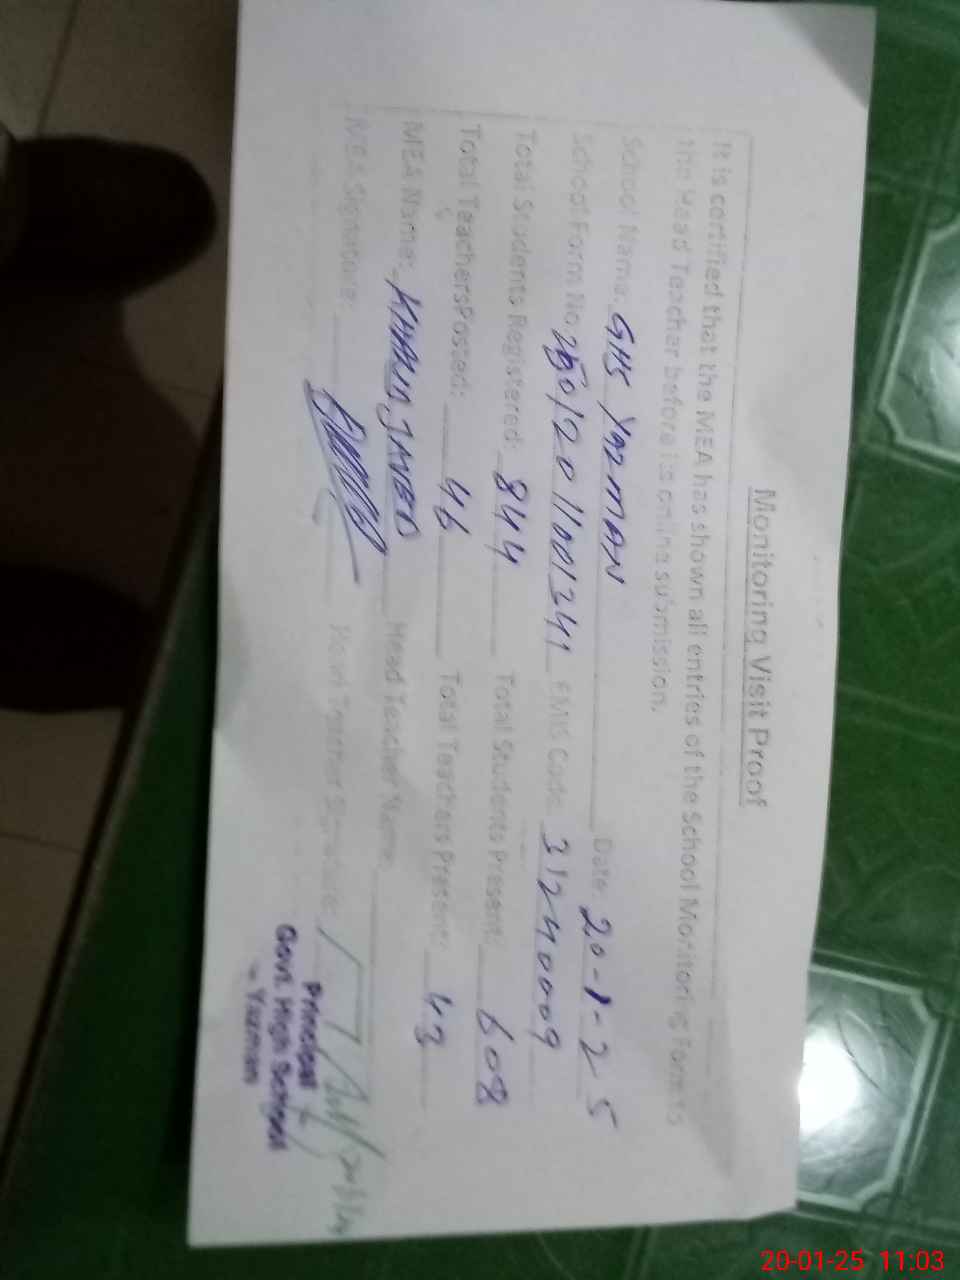 Monitoring Visit Proof
It is certified that the MEA has shown all entries of the School Monitoring Forms
the Head Teacher before its online submission.
School Name: GHS YAZMAN Date: 20-1-25
School Form No. EMIS Code 31240009
Total Students Registered: 844 Total Students Present: 608
Total TeachersPosted: 46 Total Teachers Present: 43
MEA Name: JAVED Head Teacher Name:
MEA Signature: Head Teacher Signature:
Principal
Govt. High School
Yazman
20-01-25 11:03